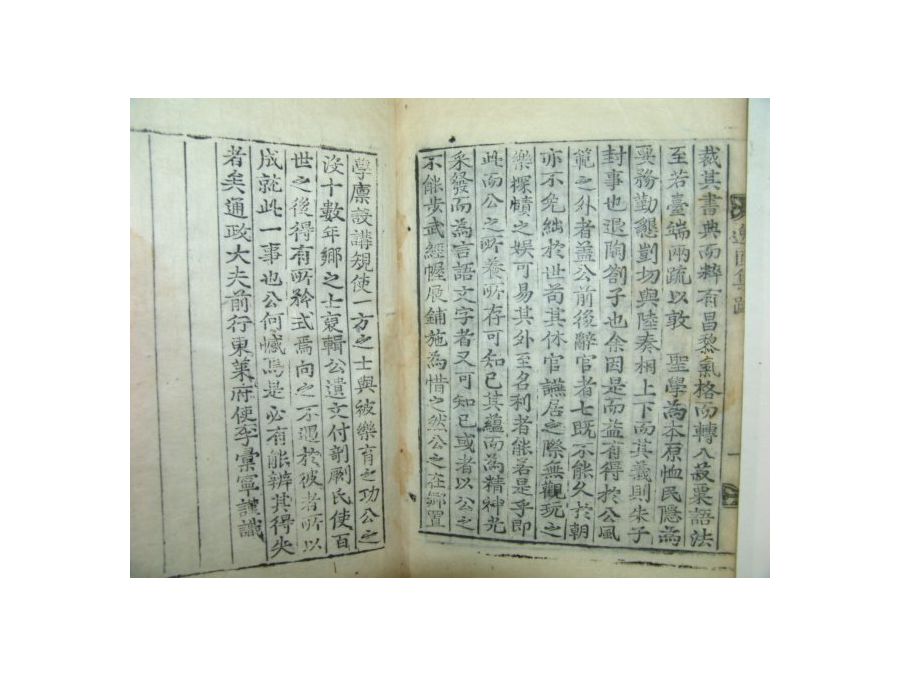 裁其書典而粹有昌黎氣格而轉入菽粟語法
至若臺端兩疏以敦 聖學為本原恤民隱為
要務勤懇剴切與陸奏相上下而其義則朱子
封事也退陶劄子也余因是而益有得於公風
範之外者盖公前後辭官者七旣不能久於朝
亦不免絀於世苟其休官讌居之際無觀玩之
樂探賾之娛可易其外至名利者能若是乎卽
此而公之所養所存可知已其蘊而為精神光
采發而為言語文字者又可知已或者以公之
不能步武經幄展鋪施為惜之然公之在鄕置
學廪設講規使一方之士與被樂育之功公之
沒十數年鄕之士裒輯公遺文付剞劂氏使百
世之後得有所矜式焉向之不遇於彼者所以
成就此一事也公何憾焉是必有能辨其得失
者矣通政大夫前行東萊府使李彙寧謹識